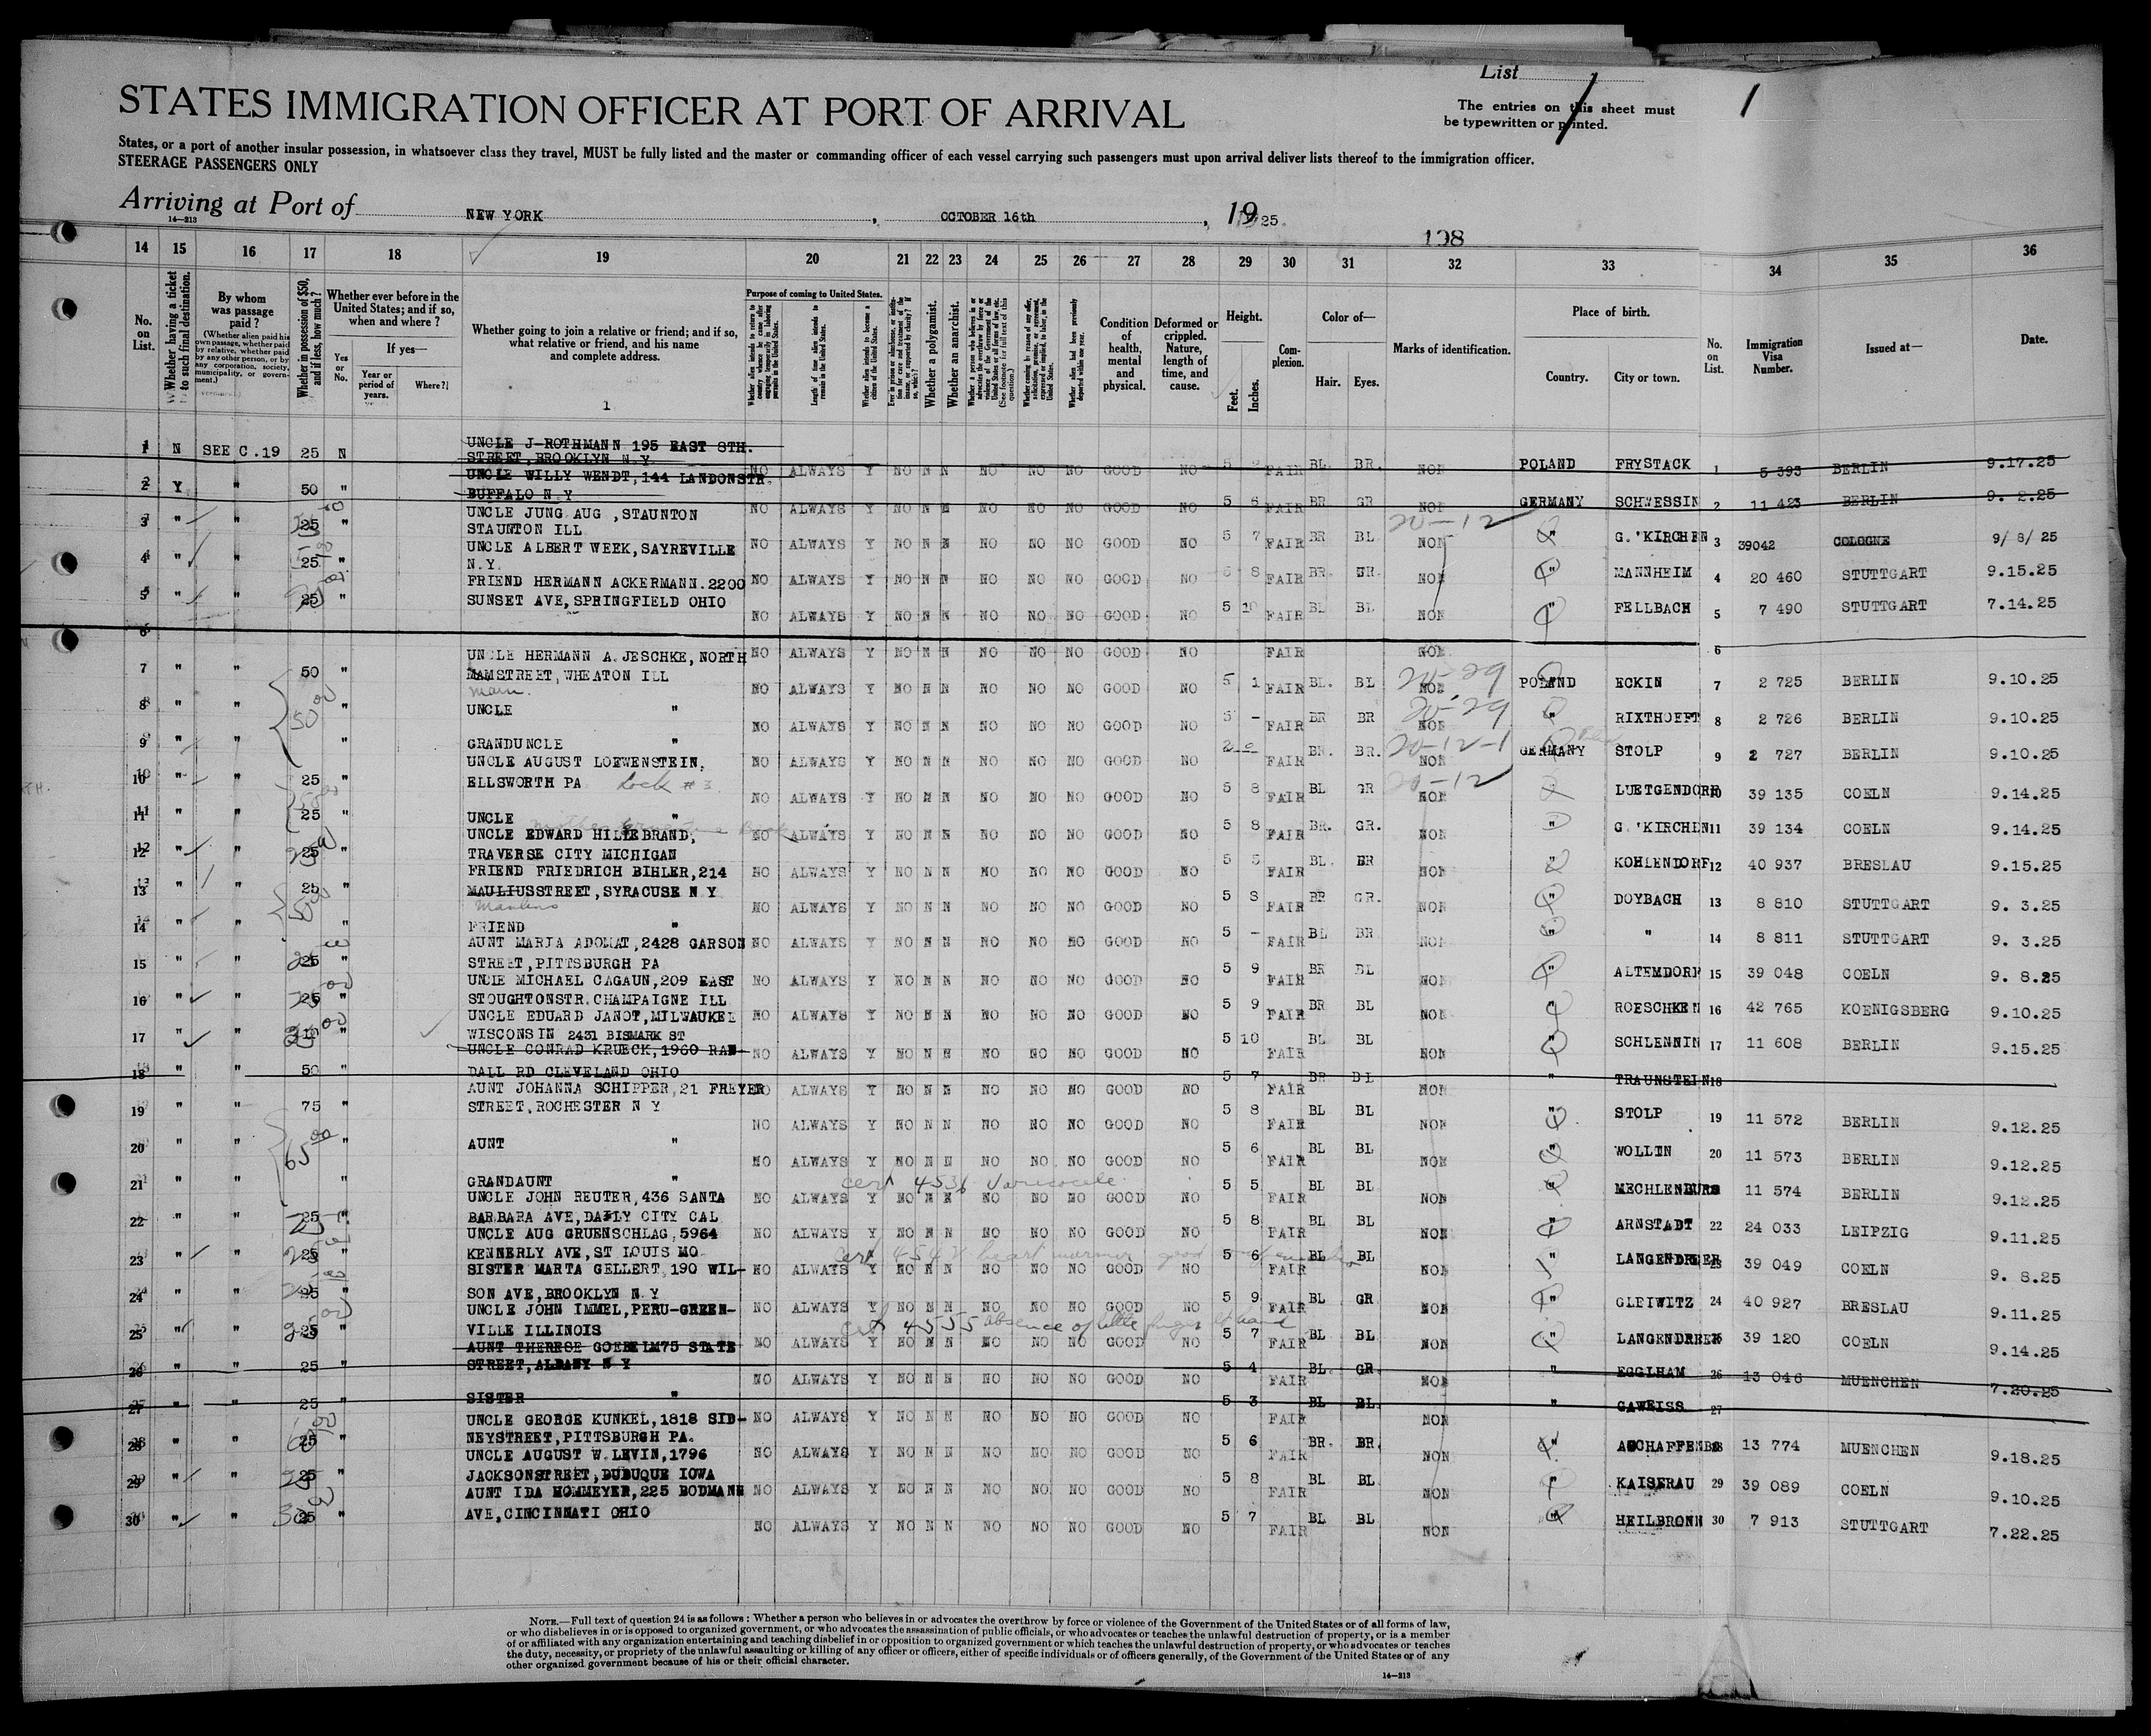 List 1
The entries on this sheet must
be typewritten or printed.
1
STATES IMMIGRATION OFFICER AT PORT OF ARRIVAL
States, or a port of another insular possession, in whatsoever class they travel, MUST be fully listed and the master or commanding officer of each vessel carrying such passengers must upon arrival deliver lists thereof to the immigration officer.
STEERAGE PASSENGERS ONLY
Arriving at Port of NEW YORK, OCTOBER 16th, 1925.
14—213
198
14 15 16 17 18 19 20 21 22 23 24 25 26 27 28 29 30 31 32 33 34 35 36
No. on List.
Whether having a ticket to such final destination.
By whom was passage paid?
(Whether alien paid his own passage, whether paid by relative, whether paid by any other person, or by any corporation, society, municipality, or government.)
Whether in possession of $50, and if less, how much?
Whether ever before in the United States; and if so, when and where?
Yes or No.
If yes—
Year or period of years.
Where?
Whether going to join a relative or friend; and if so, what relative or friend, and his name and complete address.
Purpose of coming to United States.
Whether alien intends to return to country whence he came after engaging temporarily in laboring pursuits in the United States.
Length of time alien intends to remain in the United States.
Whether alien intends to become a citizen of the United States.
Whether a polygamist.
Whether an anarchist.
Condition of health, mental and physical.
Deformed or crippled. Nature, length of time, and cause.
Height.
Feet. Inches.
Complexion.
Color of—
Hair. Eyes.
Marks of identification.
Place of birth.
Country. City or town.
No. on List.
Immigration Visa Number.
Issued at—
Date.
1 N SEE C.19 25 N UNCLE J-ROTHMANN 195 EAST 8TH. STREET, BROOKLYN N.Y. NO ALWAYS Y NO N N NO NO NO GOOD NO FAIR BL. BR. NON POLAND FRYSTACK 1 5 393 BERLIN 9.17.25
2 Y " 50 " UNCLE WILLY WENDT, 144 LANDONSTR. BUFFALO N Y NO ALWAYS Y NO N N NO NO NO GOOD NO 5 6 FAIR BR GR NON GERMANY SCHWESSIN 2 11 423 BERLIN 9. 2.25
3 " " 25 " UNCLE JUNG AUG ,STAUNTON STAUNTON ILL NO ALWAYS Y NO N N NO NO NO GOOD NO 5 7 FAIR BR BL 20-12 NON " G.'KIRCHEN 3 39042 COLOGNE 9/ 8/ 25
4 " " 25 " UNCLE ALBERT WEEK, SAYREVILLE N.Y. NO ALWAYS Y NO N N NO NO NO GOOD NO 5 8 FAIR BR. GR. NON " MANNHEIM 4 20 460 STUTTGART 9.15.25
5 " " 25 " FRIEND HERMANN ACKERMANN.2200 SUNSET AVE, SPRINGFIELD OHIO NO ALWAYS Y NO N N NO NO NO GOOD NO 5 10 FAIR BL BL NON " FELLBACH 5 7 490 STUTTGART 7.14.25
6 NO ALWAYS Y NO N N NO NO NO GOOD NO FAIR NON 6
7 " " 50 " UNCLE HERMANN A. JESCHKE, NORTH MAMSTREET, WHEATON ILL main. NO ALWAYS Y NO N N NO NO NO GOOD NO 5 1 FAIR BL. BL 20-29 NON POLAND ECKIN 7 2 725 BERLIN 9.10.25
8 " " 50 00 " UNCLE " NO ALWAYS Y NO N N NO NO NO GOOD NO 5 - FAIR BR BR 20-29 NON " RIXTHOEFT 8 2 726 BERLIN 9.10.25
9 " " " GRANDUNCLE " NO ALWAYS Y NO N N NO NO NO GOOD NO FAIR BR. BR. 20-12-1 NON GERMANY STOLP 9 2 727 BERLIN 9.10.25
10 " " 25 " UNCLE AUGUST LOEWENSTEIN, ELLSWORTH PA Lock #3 NO ALWAYS Y NO N N NO NO NO GOOD NO 5 8 FAIR BL GR 20-12 NON LUETGENDORF 10 39 135 COELN 9.14.25
11 " " 25 " UNCLE " NO ALWAYS Y NO N N NO NO NO GOOD NO 5 8 FAIR BR. GR. NON " G.'KIRCHEN 11 39 134 COELN 9.14.25
12 " " 25 " UNCLE EDWARD HILLEBRAND, TRAVERSE CITY MICHIGAN NO ALWAYS Y NO N N NO NO NO GOOD NO 5 5 FAIR BL. BR NON " KOHLENDORF 12 40 937 BRESLAU 9.15.25
13 " " 25 " FRIEND FRIEDRICH BIHLER, 214 MAULIUSSTREET, SYRACUSE N Y Manlius NO ALWAYS Y NO N N NO NO NO GOOD NO 5 8 FAIR BR GR. NON " DOYBACH 13 8 810 STUTTGART 9. 3.25
14 " " " FRIEND " NO ALWAYS Y NO N N NO NO NO GOOD NO 5 - FAIR BL BR NON " " 14 8 811 STUTTGART 9. 3.25
15 " " 25 " AUNT MARIA ADOMAT, 2428 GARSON STREET, PITTSBURGH PA NO ALWAYS Y NO N N NO NO NO GOOD NO 5 9 FAIR BR BL NON " ALTEMDORF 15 39 048 COELN 9. 8.25
16 " " 25 " UNCLE MICHAEL CAGAUN, 209 EAST STOUGHTONSTR. CHAMPAIGNE ILL NO ALWAYS Y NO N N NO NO NO GOOD NO 5 9 FAIR BR BL NON " ROESCHKEN 16 42 765 KOENIGSBERG 9.10.25
17 " " " UNCLE EDUARD JANOT, MILWAUKEE WISCONSIN 2431 BISMARK ST NO ALWAYS Y NO N N NO NO NO GOOD NO 5 10 FAIR BL BL NON " SCHLENNIN 17 11 608 BERLIN 9.15.25
18 " " 50 " UNCLE CONRAD KRUECK, 1960 RANDALL RD CLEVELAND OHIO NO ALWAYS Y NO N N NO NO NO GOOD NO 5 7 FAIR BR BL NON " TRAUNSTEIN 18
19 " " 75 " AUNT JOHANNA SCHIPPER, 21 FREYER STREET, ROCHESTER N Y NO ALWAYS Y NO N N NO NO NO GOOD NO 5 8 FAIR BL BL NON " STOLP 19 11 572 BERLIN 9.12.25
20 " " 65 00 " AUNT " NO ALWAYS Y NO N N NO NO NO GOOD NO 5 6 FAIR BL BL NON " WOLLIN 20 11 573 BERLIN 9.12.25
21 " " " GRANDAUNT " cert 4536 Varicocele NO ALWAYS Y NO N N NO NO NO GOOD NO 5 5 FAIR BL BL NON " MECHLENBURG 11 574 BERLIN 9.12.25
22 " " 25 " UNCLE JOHN REUTER, 436 SANTA BARBARA AVE, DAILY CITY CAL NO ALWAYS Y NO N N NO NO NO GOOD NO 5 8 FAIR BL BL NON " ARNSTADT 22 24 033 LEIPZIG 9.11.25
23 " " 25 " UNCLE AUG GRUENSCHLAG, 5964 KENNERLY AVE, ST LOUIS MO. NO ALWAYS Y NO N N NO NO NO GOOD NO 5 6 FAIR BL BL NON " LANGENDREER 23 39 049 COELN 9. 8.25
24 " " 25 " SISTER MARTA GELLERT, 190 WILSON AVE, BROOKLYN N Y NO ALWAYS Y NO N N NO NO NO GOOD NO 5 9 FAIR BL GR NON " GLEIWITZ 24 40 927 BRESLAU 9.11.25
25 " " 25 " UNCLE JOHN IMMEL, PERU-GREENVILLE ILLINOIS cert 4555 absence of little finger lt hand NO ALWAYS Y NO N N NO NO NO GOOD NO 5 7 FAIR BL BL NON " LANGENDREER 25 39 120 COELN 9.14.25
26 " " 25 " AUNT THERESE GOEBEL 175 STATE STREET, ALBANY N Y NO ALWAYS Y NO N N NO NO NO GOOD NO 5 4 FAIR BL. GR. NON " EGGLHAM 26 13 046 MUENCHEN 7.20.25
27 " " 25 " SISTER " NO ALWAYS Y NO N N NO NO NO GOOD NO 5 3 FAIR BL BL. NON " GAWEISS 27
28 " " 25 " UNCLE GEORGE KUNKEL, 1818 SIDNEYSTREET, PITTSBURGH PA. NO ALWAYS Y NO N N NO NO NO GOOD NO 5 6 FAIR BR. BR. NON " ASCHAFFENBG 28 13 774 MUENCHEN 9.18.25
29 " " 25 " UNCLE AUGUST W. LEVIN, 1796 JACKSONSTREET, DUBUQUE IOWA NO ALWAYS Y NO N N NO NO NO GOOD NO 5 8 FAIR BL BL. NON " KAISERAU 29 39 089 COELN 9.10.25
30 " " 25 " AUNT IDA HOMMEYER, 225 BODMANN AVE, CINCINNATI OHIO NO ALWAYS Y NO N N NO NO NO GOOD NO 5 7 FAIR BL BL NON " HEILBRONN 30 7 913 STUTTGART 7.22.25
NOTE.—Full text of question 24 is as follows: Whether a person who believes in or advocates the overthrow by force or violence of the Government of the United States or of all forms of law,
or who disbelieves in or is opposed to organized government, or who advocates the assassination of public officials, or who advocates or teaches the unlawful destruction of property, or is a member
of or affiliated with any organization entertaining and teaching disbelief in or opposition to organized government or which teaches the unlawful destruction of property, or who advocates or teaches
the duty, necessity, or propriety of the unlawful assaulting or killing of any officer or officers, either of specific individuals or of officers generally, of the Government of the United States or of any
other organized government because of his or their official character.
14—213